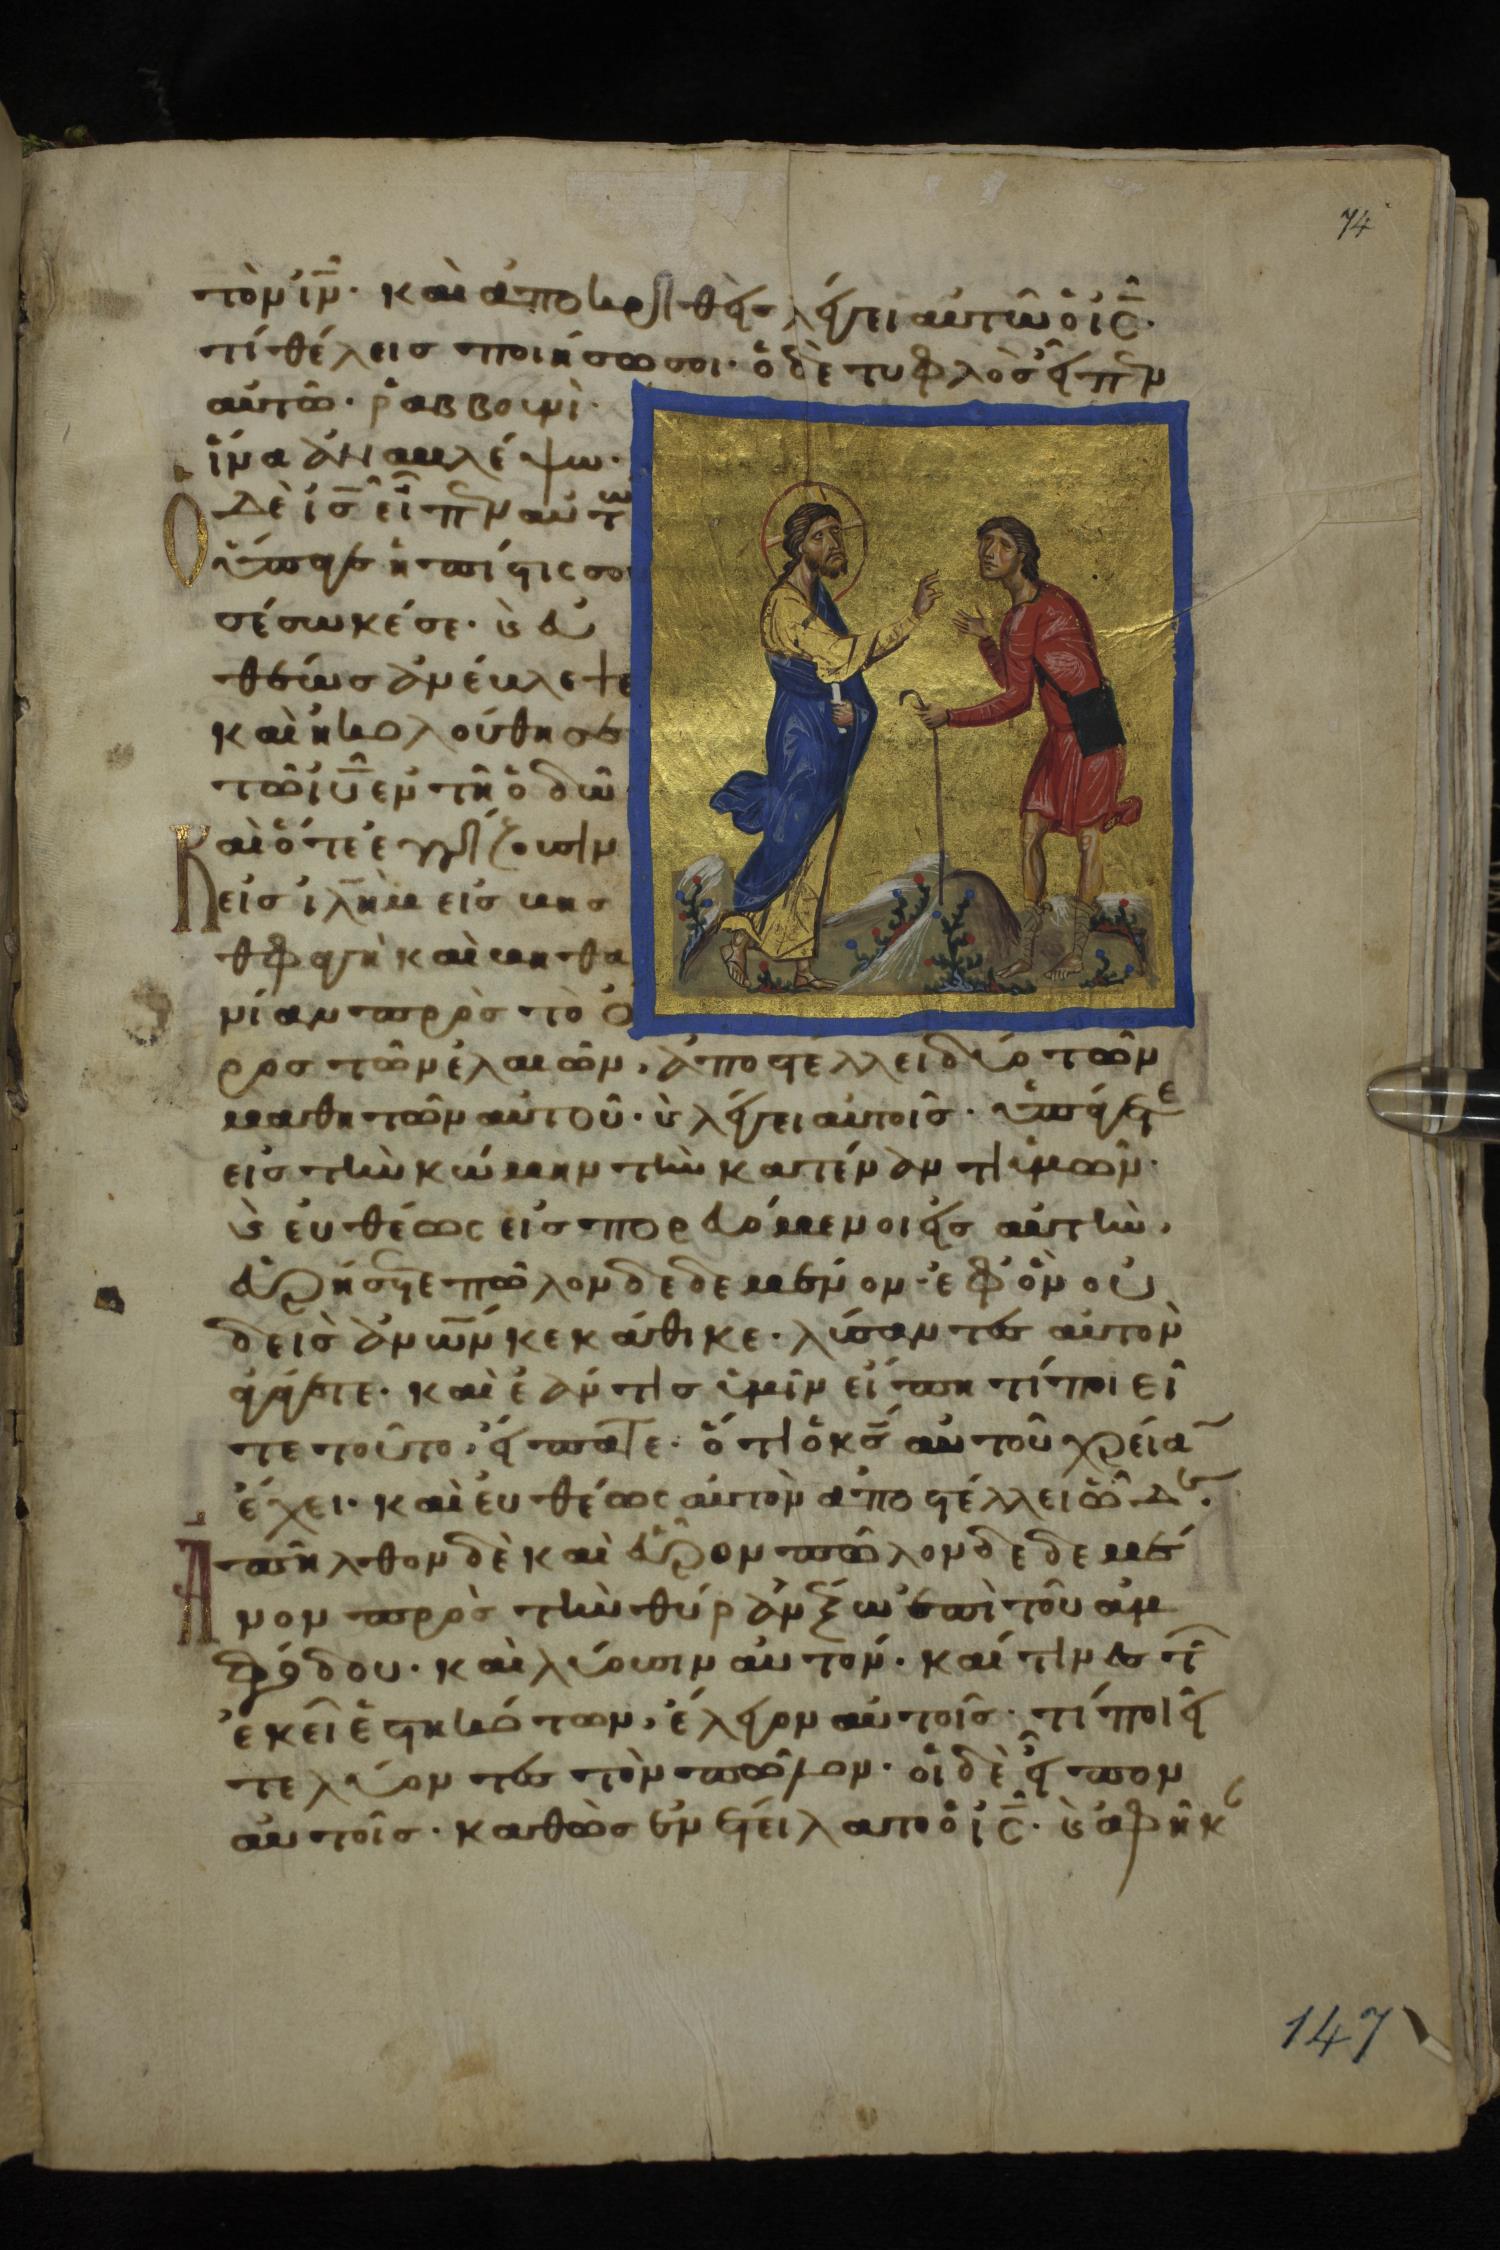 74
τὸν ιν̅. καὶ ἀποκριθεὶς λέγει αὐτῶ ὁ ις̅.
τί θέλεις ποιήσω σοι. ὁ δὲ τυφλὸς εἶπεν
αὐτῶ. ῥαββουνὶ.
ἵνα ἀναβλέψω.
Ο δὲ ις̅ εἶπεν αὐτῶ
ὕπαγε ἡ πίστις σου
σέσωκέ σε. καὶ εὐ
θέως ἀνέβλεψε
καὶ ἠκολούθησε
τῶ ιυ̅ ἐν τῆ ὁδῶ
Καὶ ὅτε ἐγγίζουσιν
εἰς ιλημ̅ εἰς βηθ
σφαγὴ καὶ βηθα
νίαν πρὸς τὸ ὄ
ρος τῶν ἐλαιῶν, ἀποστέλλει δύο τῶν
μαθητῶν αὐτοῦ. καὶ λέγει αὐτοῖς. ὑπάγετε
εἰς τὴν κώμην τὴν κατέναντι ὑμῶν.
καὶ εὐθέως εἰσπορευόμενοι εἰς αὐτὴν,
εὑρήσετε πῶλον δεδεμένον. ἐφ' ὃν οὐ
δεὶς ἀνων̅ κεκάθικε. λύσαντες αὐτὸν
ἀγάγετε. καὶ ἐάν τις ὑμῖν εἴπη τί ποιεῖ
τε τοῦτο, εἴπατε. ὅτι ὁ κς̅ αὐτοῦ χρείαν
ἔχει. καὶ εὐθέως αὐτὸν ἀποστέλλει ὧδε.
Ἀπῆλθον δὲ καὶ εὗρον πῶλον δεδεμέ
νον πρὸς τὴν θύραν ἔξω ἐπὶ τοῦ ἀμ
φόδου. καὶ λύουσιν αὐτόν. καί τινες τῶν
ἐκεῖ ἑστηκότων, ἔλεγον αὐτοῖς. τί ποιεῖ
τε λύοντες τὸν πῶλον. οἱ δὲ εἶπον
αὐτοῖς. καθὼς ἐνετείλατο ὁ ις̅. καὶ ἀφῆκ
147